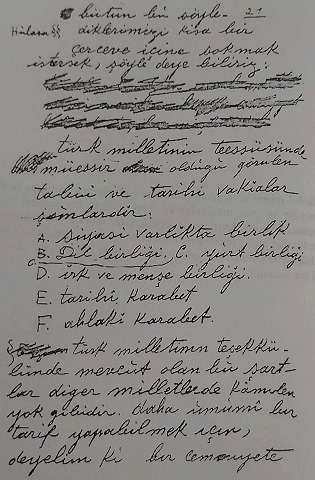 bütün bu söyle- 21
Hülasa §§ diklerimizi kısa bir
çerçeve içine sokmak
istersek, şöyle deye biliriz:
türk milletinin teessüsünde
müessir olduğu görülen
tabiî ve tarihî vakıalar
şunlardır:
A. siyasî varlıkta birlik
B. Dil birliği, C. yurt birliği
D. ırk ve menşe birliği.
E. tarihî karabet
F. ahlakî karabet.
§ türk milletinin teşekkü-
lünde mevcut olan bu şart-
lar diger milletlerde kâmilen
yok gibidir. daha umumî bir
tarif yapabilmek için,
deyelim ki bir cemiyete